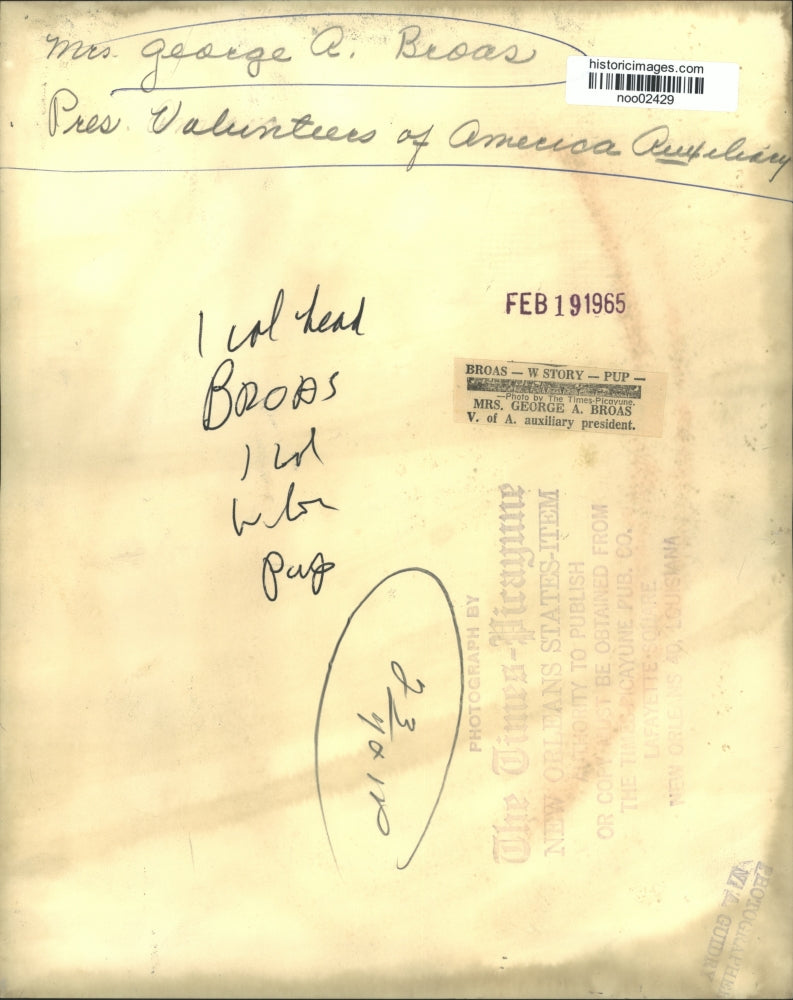 Mrs. George A. Broas
historicimages.com
noo02429
Pres. Volunteers of America Auxiliary
FEB 19 1965
1 col head
BROAS
1 col
Pup
BROAS — W STORY — PUP —
—Photo by The Times-Picayune.
MRS. GEORGE A. BROAS
V. of A. auxiliary president.
PHOTOGRAPH BY
The Times-Picayune
NEW ORLEANS STATES-ITEM
AUTHORITY TO PUBLISH
OR COPY MUST BE OBTAINED FROM
THE TIMES-PICAYUNE PUB. CO.
LAFAYETTE SQUARE
NEW ORLEANS 40, LOUISIANA
PHOTOGRAPHER
GUIDRY